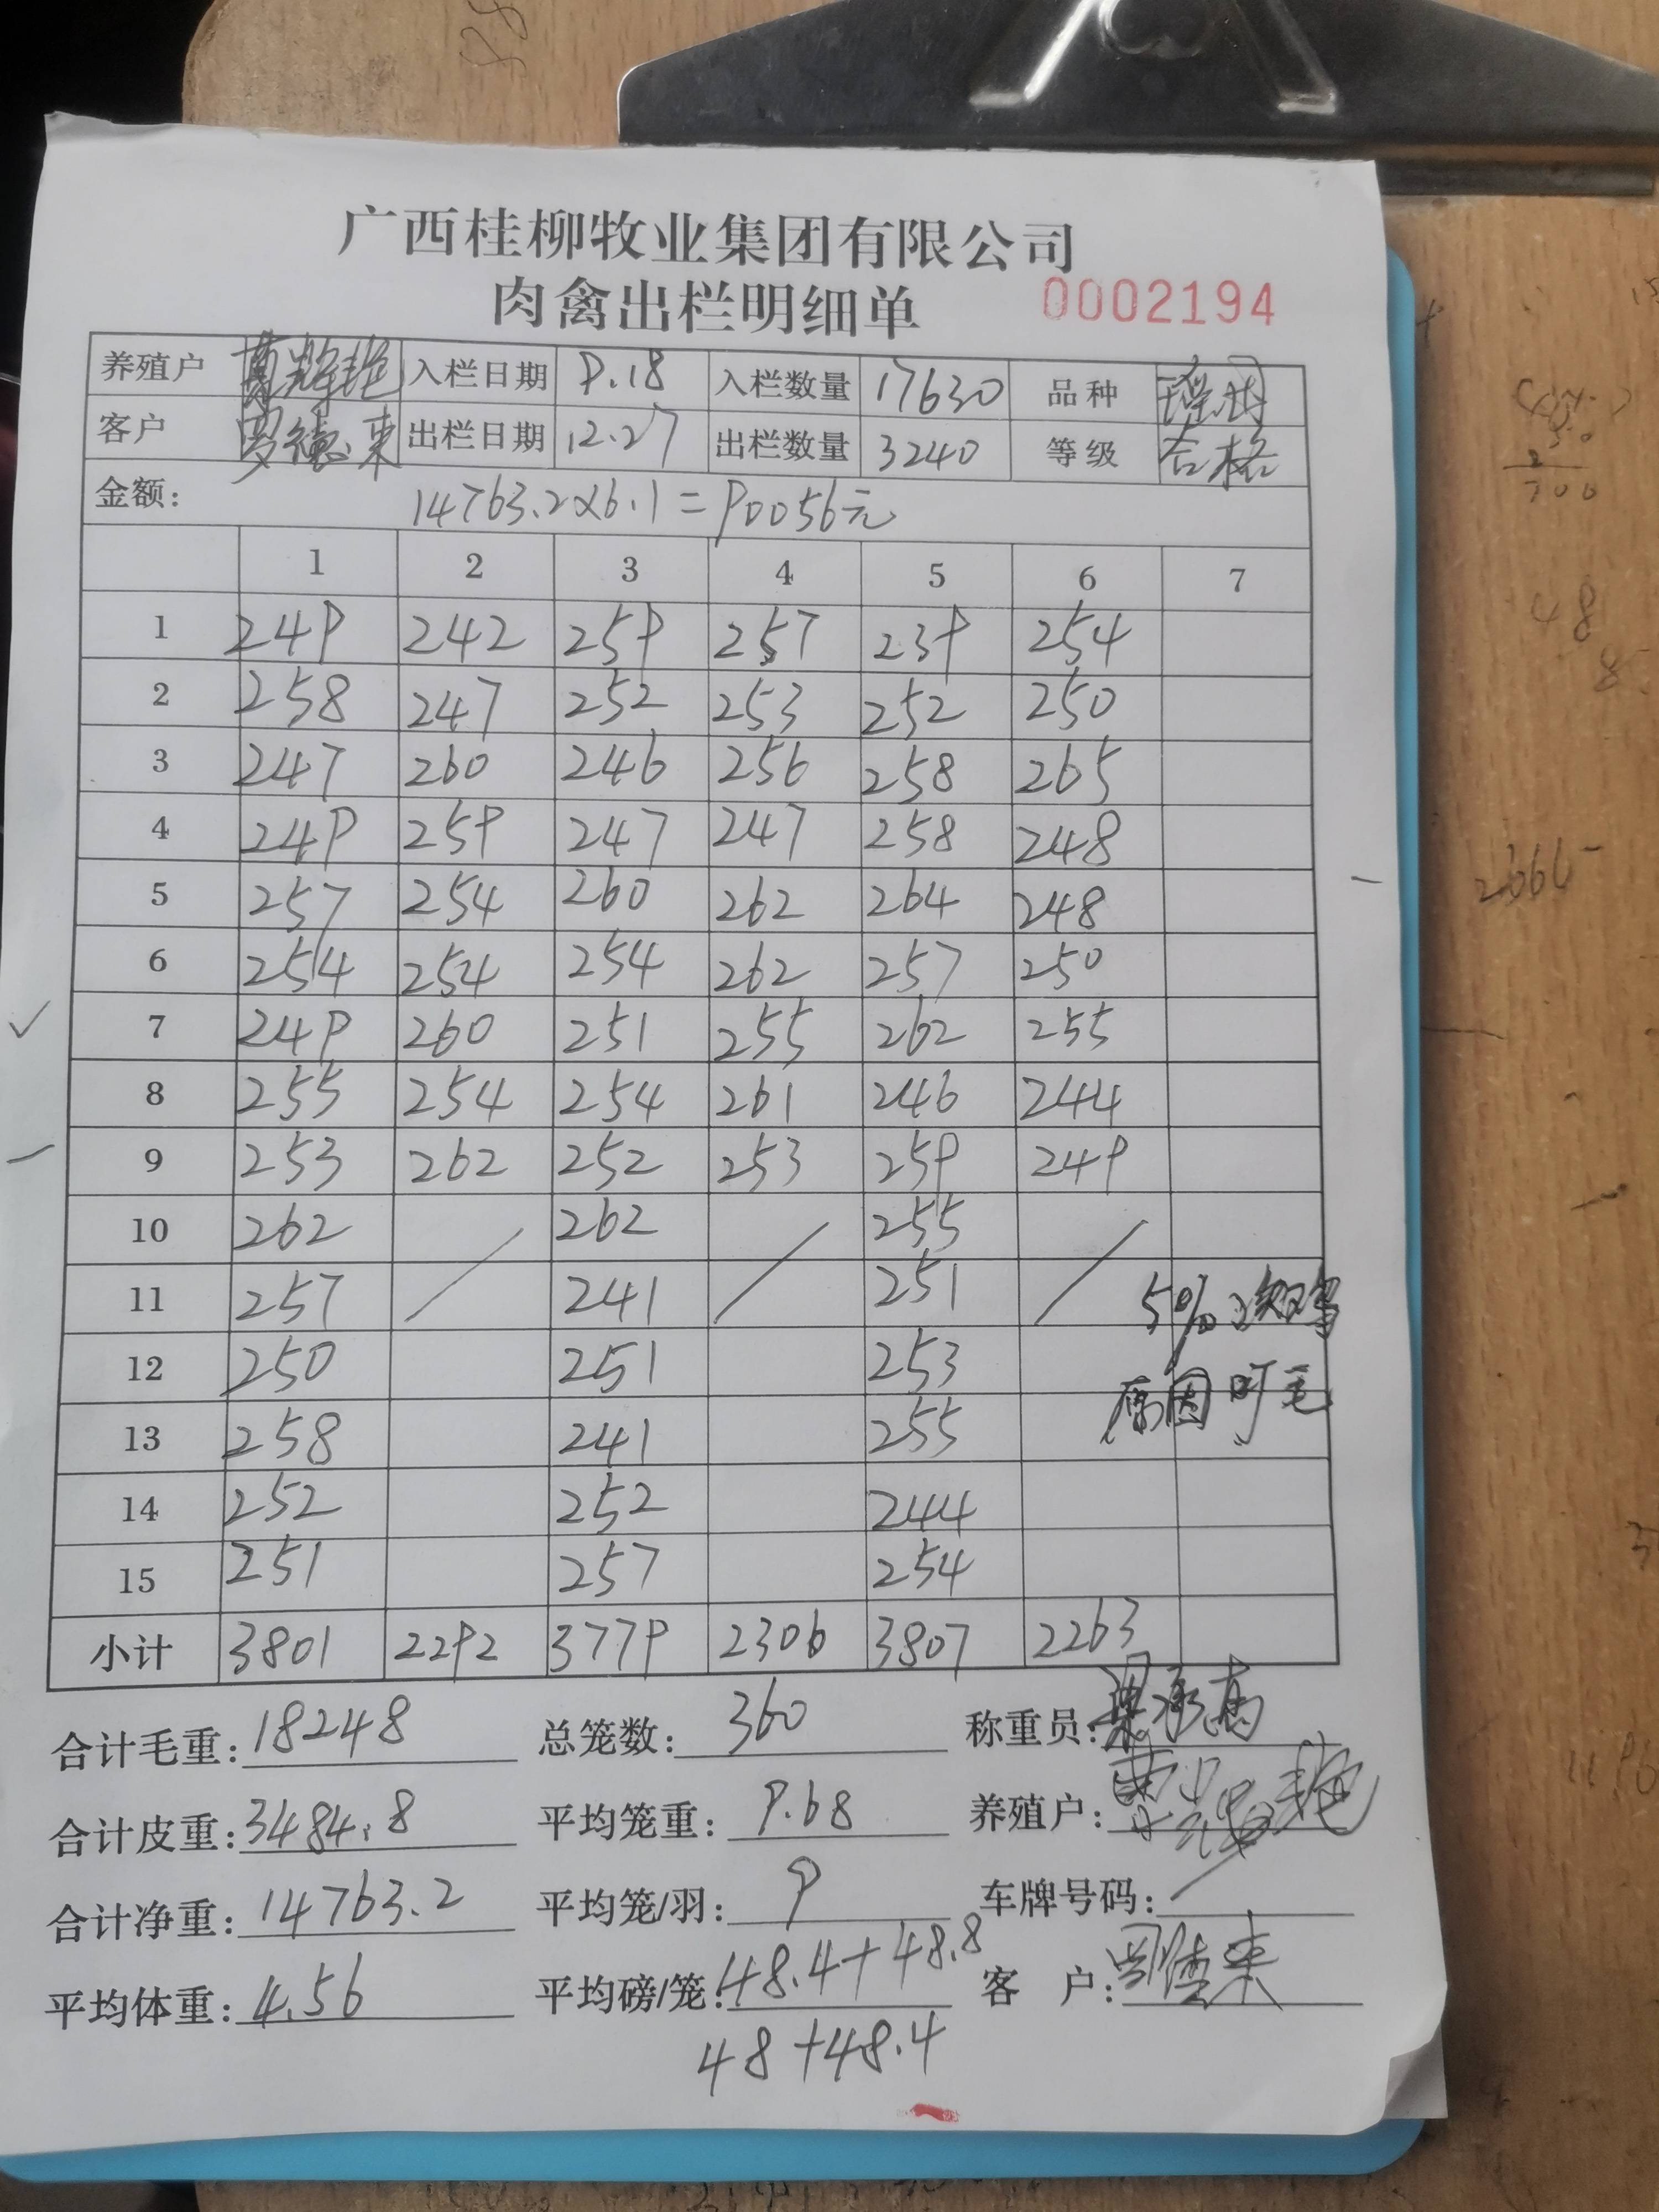 广西桂柳牧业集团有限公司
肉禽出栏明细单 0002194
养殖户 入栏日期 9.18 入栏数量 17630 品种
客户 罗德来 出栏日期 12.27 出栏数量 3240 等级 合格
金额: 14763.2×6.1=90056元
1 2 3 4 5 6 7
1 249 242 259 257 239 254
2 258 247 252 253 252 250
3 247 260 246 256 258 265
4 249 259 247 247 258 248
5 257 254 260 262 264 248
6 254 254 254 262 257 250
7 249 260 251 255 262 255
8 255 254 254 261 246 244
9 253 262 252 253 259 249
10 262 262 255
11 257 241 251 5%
12 250 251 253
13 258 241 255 原因叮毛
14 252 252 244
15 251 257 254
小计 3801 2292 3779 2306 3807 2263
合计毛重: 18248 总笼数: 360 称重员:
合计皮重: 3484.8 平均笼重: 9.68 养殖户:
合计净重: 14763.2 平均笼/羽: 9 车牌号码:
平均体重: 4.56 平均磅/笼: 48.4+48.8 客 户:
48+48.4